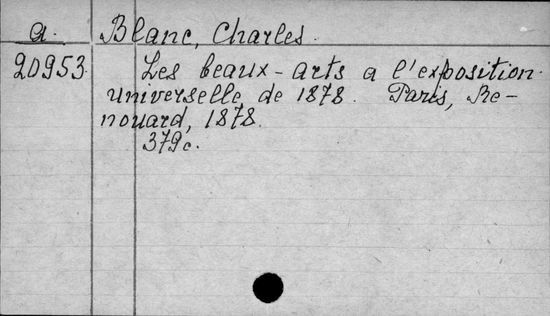 a. Blanc, Charles.
20953 Les beaux-arts a l'exposition
universelle de 1878. Paris, Re-
nouard, 1878.
379c.